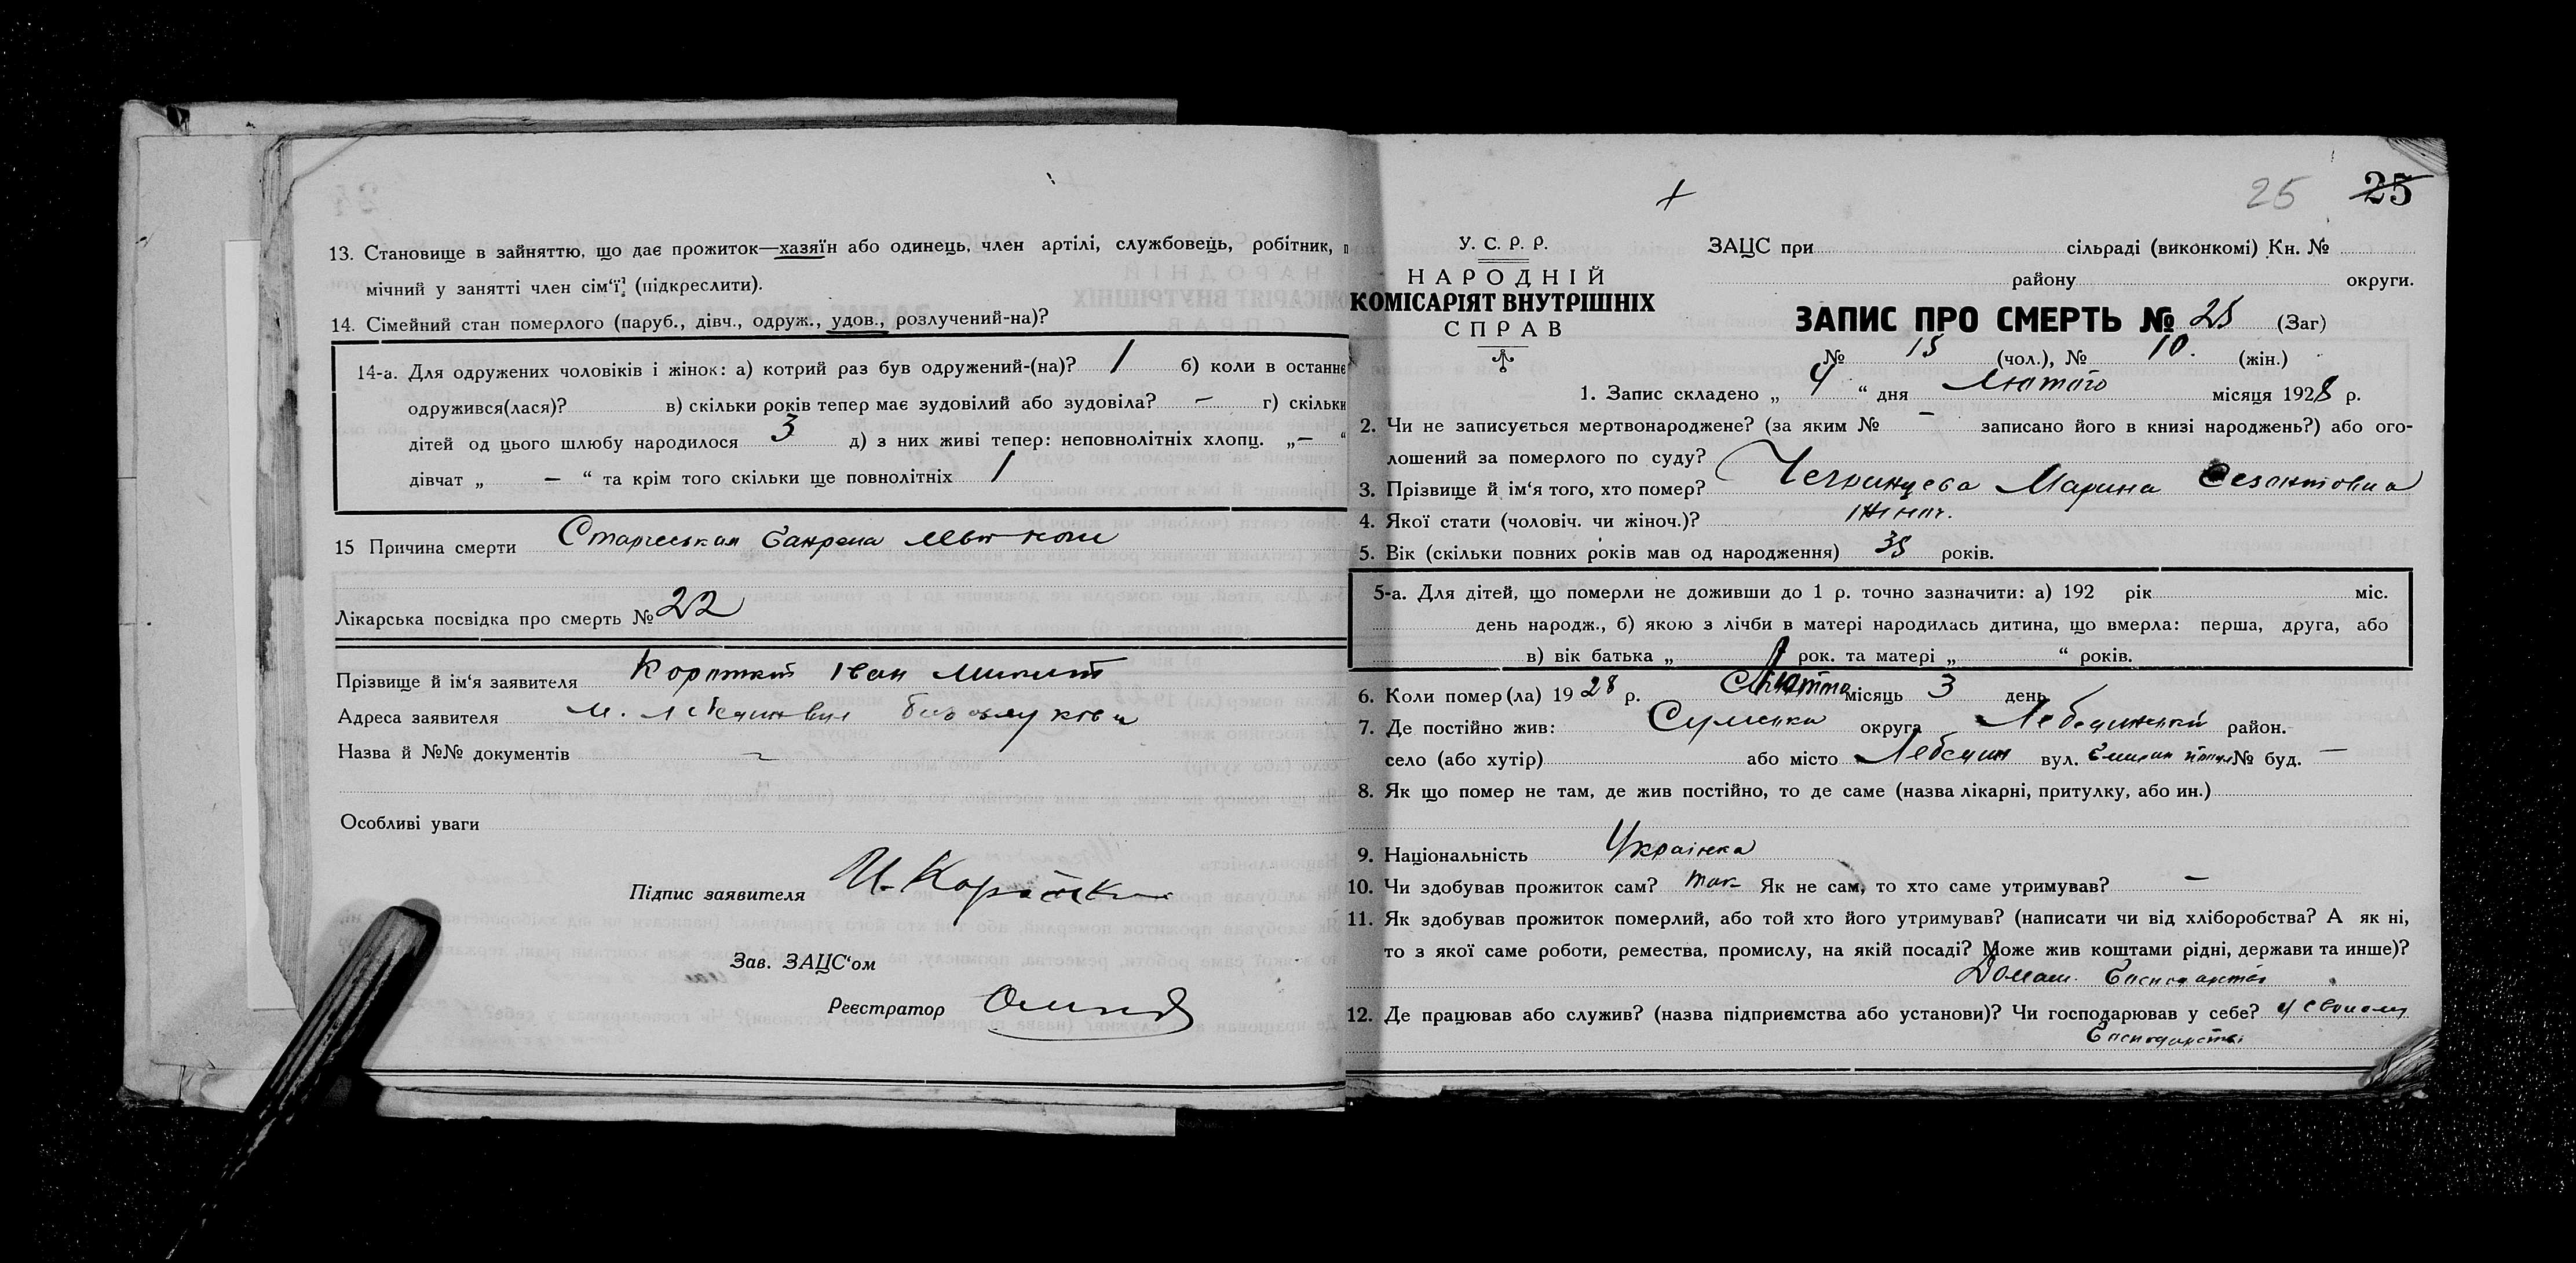 13. Становище в зайняттю, що дає прожиток—хазяїн або одинець, член артілі, службовець, робітник, п
мічний у занятті член сім‘ї; (підкреслити).
14. Сімейний стан померлого (паруб., дівч., одруж., удов., розлучений-на)?
14-а. Для одружених чоловіків і жінок: а) котрий раз був одружений-(на)? 1 б) коли в останнє
одружився(лася)? в) скільки років тепер має зудовілий або зудовіла? — г) скільки
дітей од цього шлюбу народилося 3 д) з них живі тепер: неповнолітніх хлопц. „—“
дівчат „ — “ та крім того скільки ще повнолітніх 1
15 Причина смерти
Лікарська посвідка про смерть № 22
Прізвище й ім‘я заявителя Короткий Іван
Адреса заявителя м.
Назва й №№ документів —
Особливі уваги
Підпис заявителя И. Коротк
Зав. ЗАЦС‘ом
Реєстратор
25 25
У. С. Р. Р.
НАРОДНІЙ
КОМІСАРІЯТ ВНУТРІШНІХ
СПРАВ
ЗАЦС при сільраді (виконкомі) Кн. №
району округи.
ЗАПИС ПРО СМЕРТЬ № 25 (Заг)
№ 15 (чол.), № 10. (жін.)
1. Запис складено „ 4 “ дня Лютого місяця 1928 р.
2. Чи не записується мертвонароджене? (за яким № — записано його в книзі народжень?) або ого-
лошений за померлого по суду?
3. Прізвище й ім‘я того, хто помер? Марина
4. Якої стати (чоловіч. чи жіноч.)? жіноч.
5. Вік (скільки повних років мав од народження) років.
5-а. Для дітей, що померли не доживши до 1 р. точно зазначити: а) 192 рік міс.
день народж., б) якою з лічби в матері народилась дитина, що вмерла: перша, друга, або
в) вік батька „ рок. та матері „ “ років.
6. Коли помер(ла) 1928 р. місяць 3 день
7. Де постійно жив: Сумська округа Лебединський район.
село (або хутір) або місто Лебедин вул. № буд. —
8. Як що помер не там, де жив постійно, то де саме (назва лікарні, притулку, або ин.)
9. Національність Українка
10. Чи здобував прожиток сам? так Як не сам, то хто саме утримував? —
11. Як здобував прожиток померлий, або той хто його утримував? (написати чи від хліборобства? А як ні,
то з якої саме роботи, ремества, промислу, на якій посаді? Може жив коштами рідні, держави та инше)?
Домаш. Господарство
12. Де працював або служив? (назва підприємства або установи)? Чи господарював у себе? у своєму
Господарстві